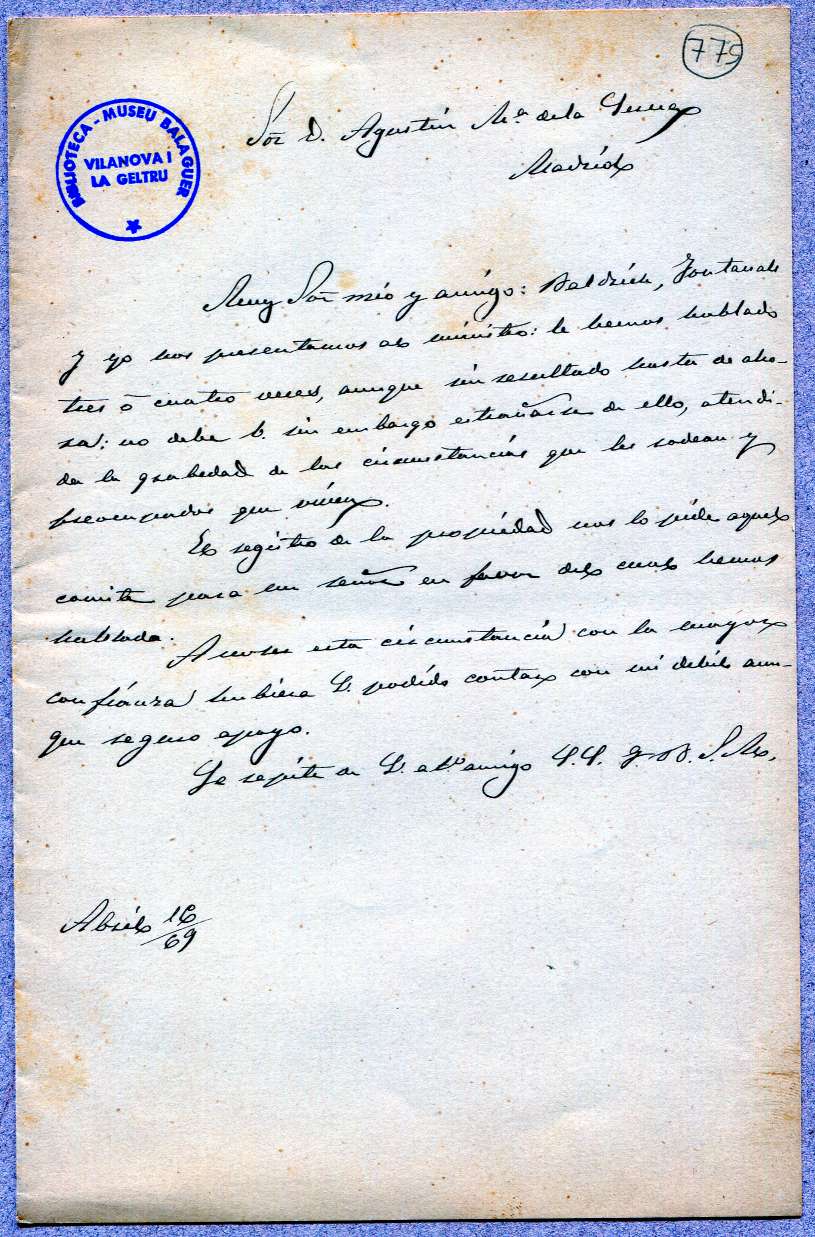 779
BIBLIOTECA - MUSEU BALAGUER
VILANOVA I
LA GELTRU
Sor. D. Agustín Mª. de la
Madrid
Muy Sor. mio y amigo: Baldrich, Fontanals
y yo nos presentamos al ministro: le hemos hablado
tres ó cuatro veces, aunque sin resultado hasta de aho-
ra; no debe V. sin embargo estrañarse de ello, atendi-
da la grabedad de las circunstancias que les rodean y
preocupados que viven.
El registro de la propiedad nos lo pide aquel
comité para un señor en favor del cual hemos
hablado.
A no ser esta circunstancia con la mayor
confianza hubiera V. podido contar con mi débil aun-
que seguro apoyo.
Se repite de V. amigo S.S. q. B.
Abril 16/69